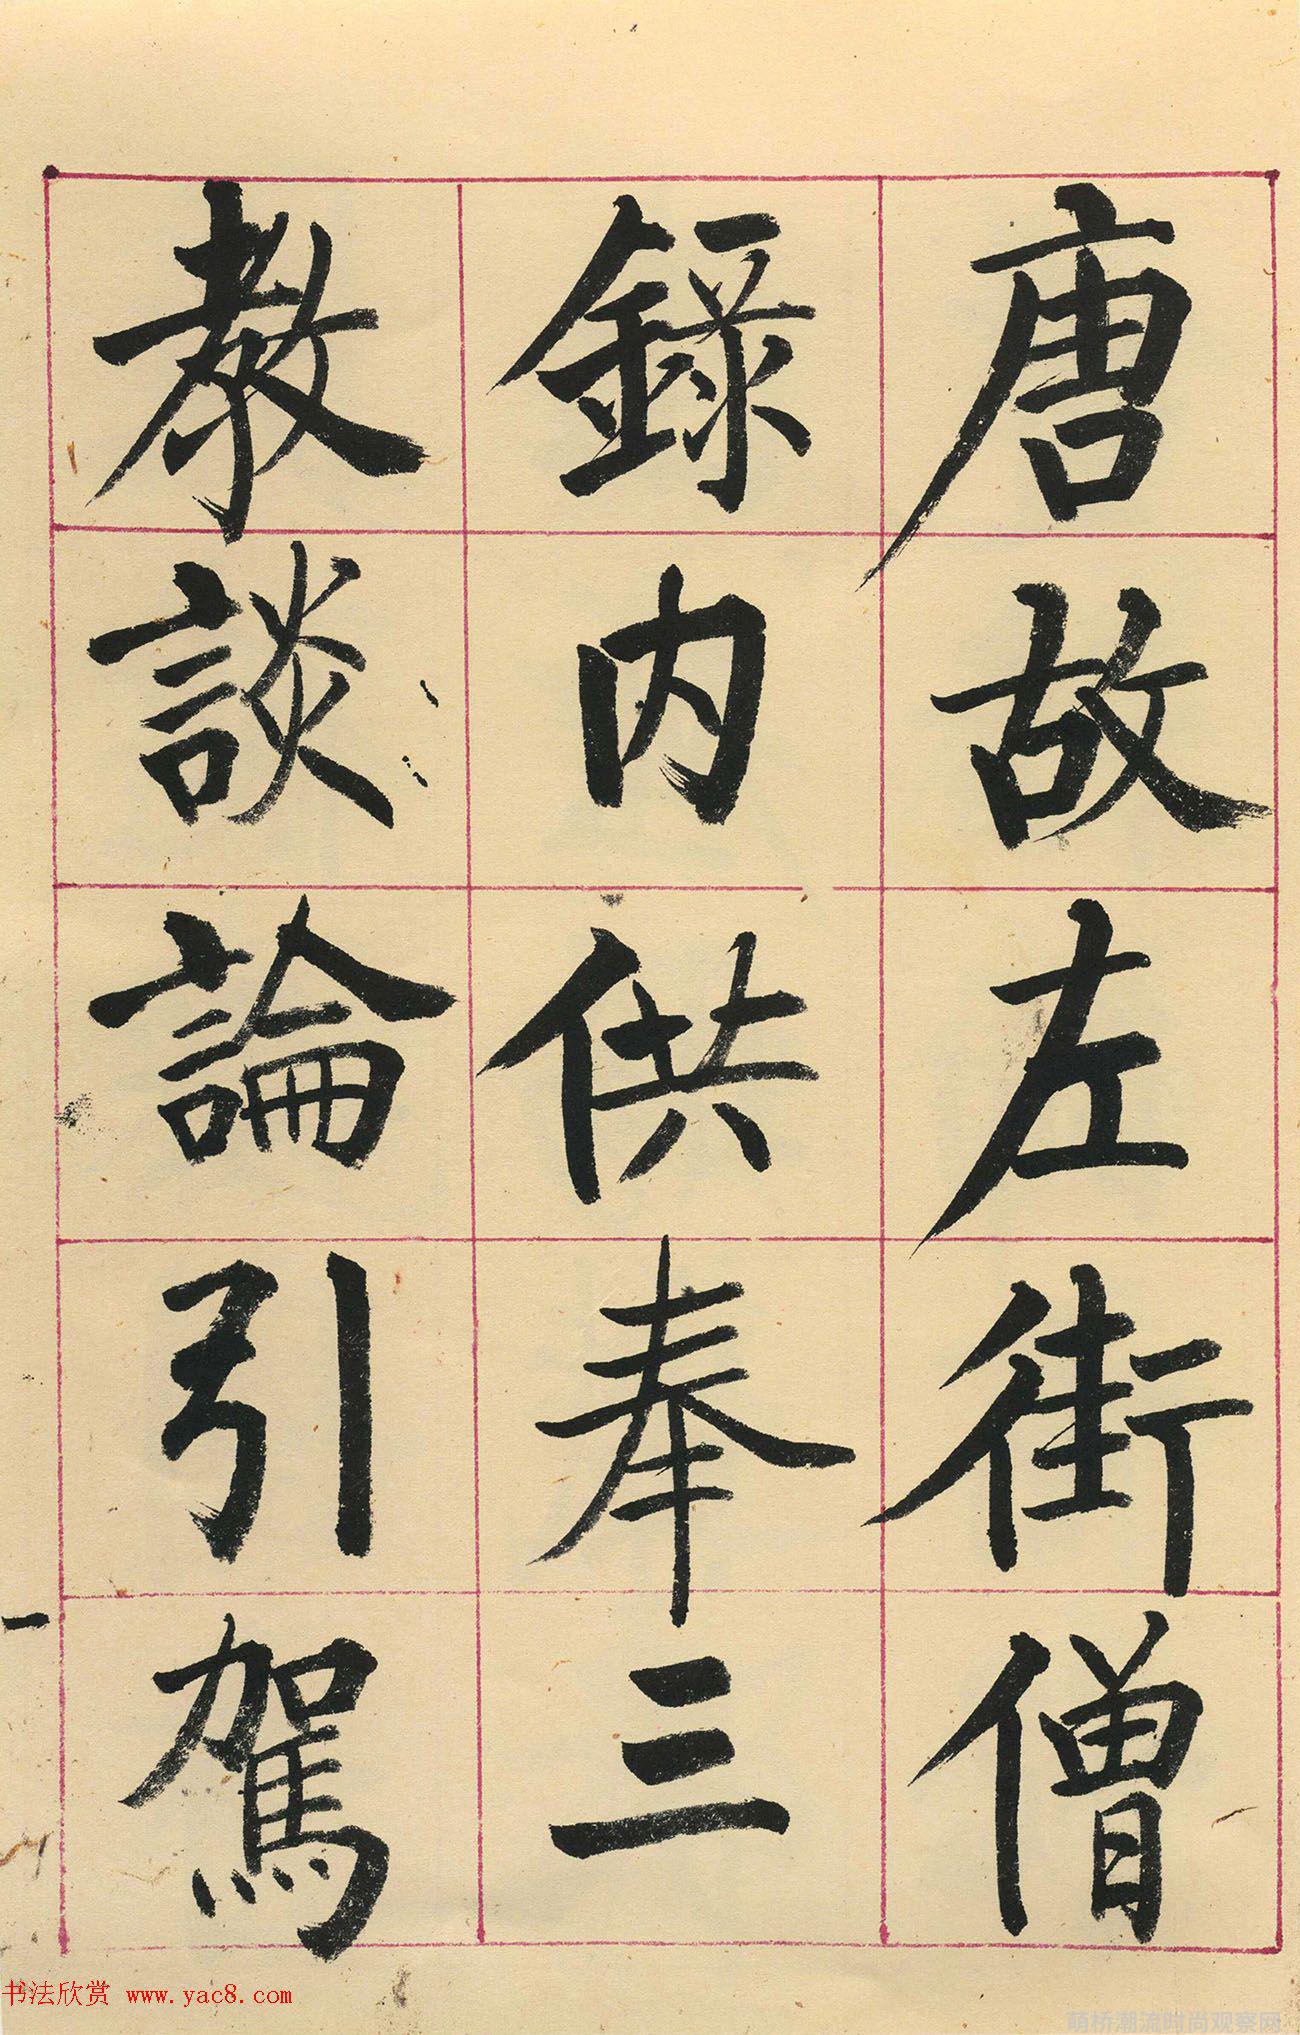 唐故左街僧
錄内供奉三
教談論引駕
书法欣赏 www.yac8.com
萌桥潮流时尚观察网